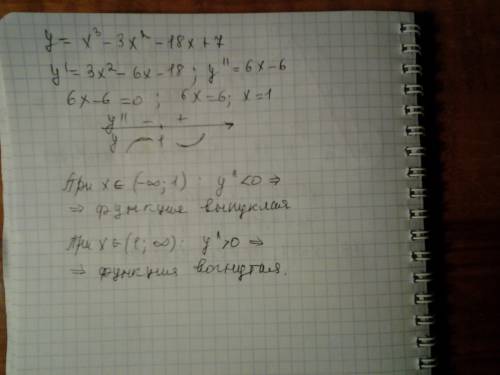 y = x³ - 3x² - 18x + 7
y' = 3x² - 6x - 18 ; y'' = 6x - 6
6x - 6 = 0 ; 6x = 6; x = 1
y'' - +
y 1
При x ∈ (-∞; 1) : y'' < 0 ⇒
⇒ функция выпуклая
При x ∈ (1; ∞) : y'' > 0 ⇒
⇒ функция вогнутая.